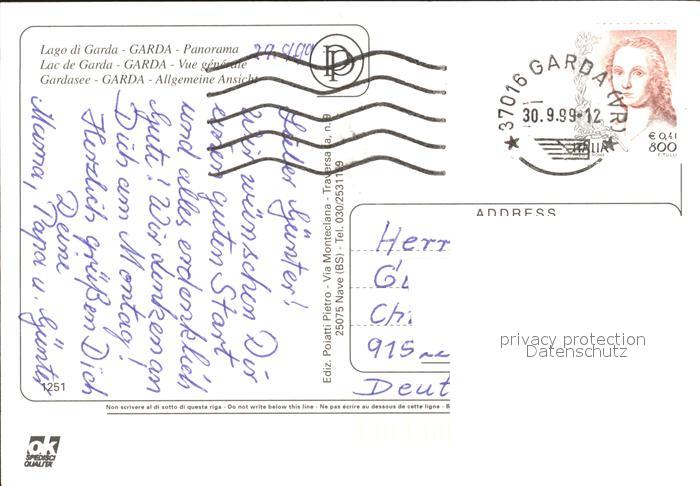 Lago di Garda - GARDA - Panorama
Lac de Garda - GARDA - Vue générale
Gardasee - GARDA - Allgemeine Ansicht
29.9.99
PP
Günter!
wir wünschen Dir
einen guten Start
und alles erdenklich
Gute! Wir denken an
Dich am Montag!
Herzlich grüßen Dich
Deine
Mama, Papa u. Günter
1251
Ediz. Poiatti Pietro - Via Monteclana - Traversa a, n. 9
25075 Nave (BS) - Tel. 030/2531159
37016 GARDA (VR)
30.9.99-12
ITALIA
€ 0,41
800
F. TULLI
ADDRESS
Herr
Deut
privacy protection
Datenschutz
Non scrivere al di sotto di questa riga - Do not write below this line - Ne pas écrire au dessous de cette ligne - B
ok
SPEDISCI
QUALITÀ